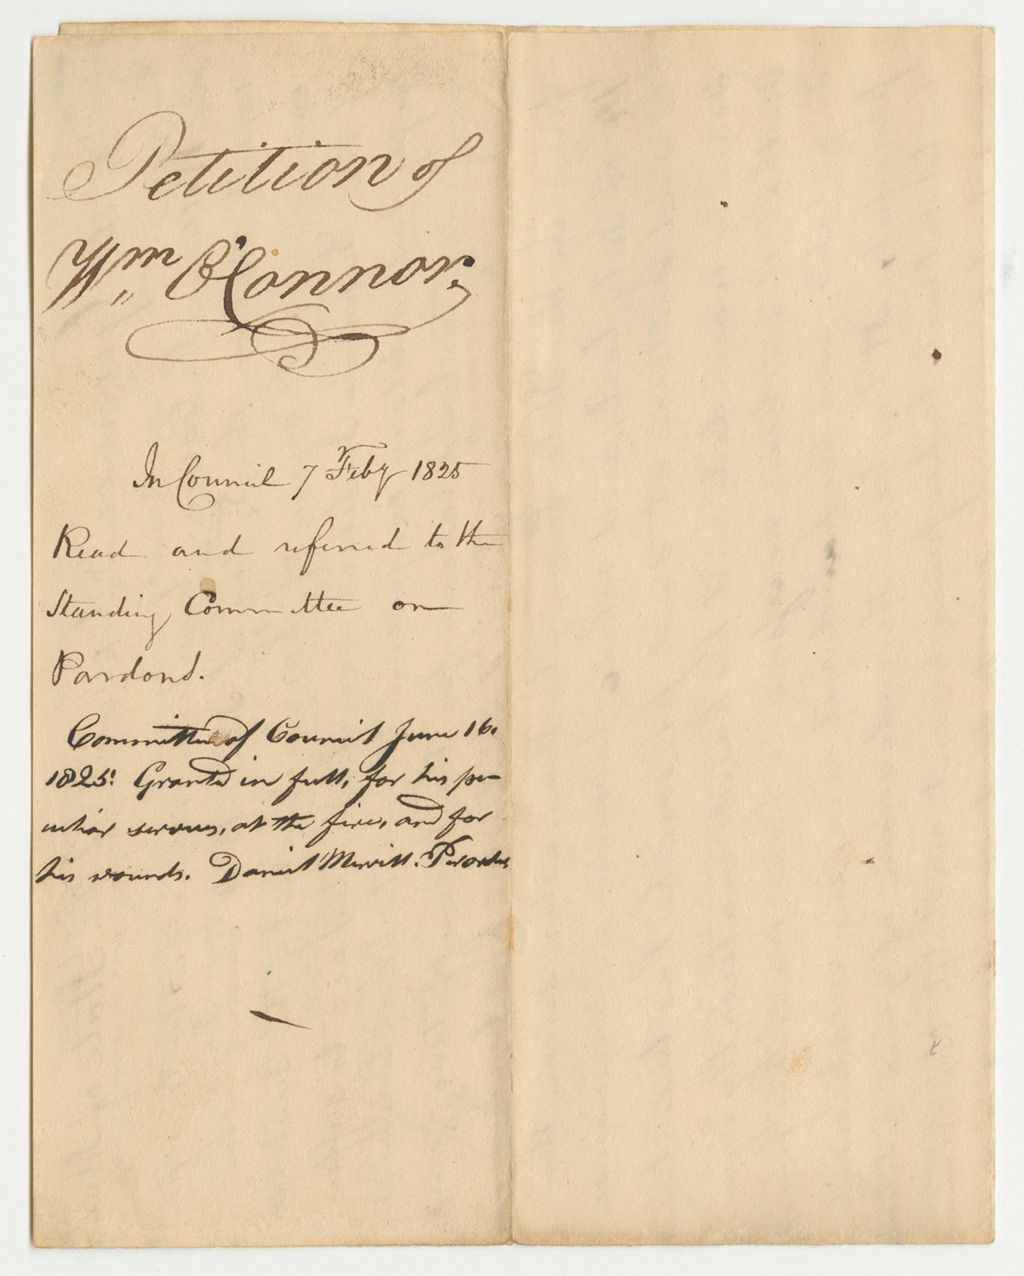 Petition of
Wm O'Connor.
In Council 7 Feby 1825
Read and referred to the
Standing Committee on
Pardons.
Committee of Council June 16.
1825. Granted in full, for his pe-
culiar services, at the fire, and for
his wounds. Daniel Merritt.